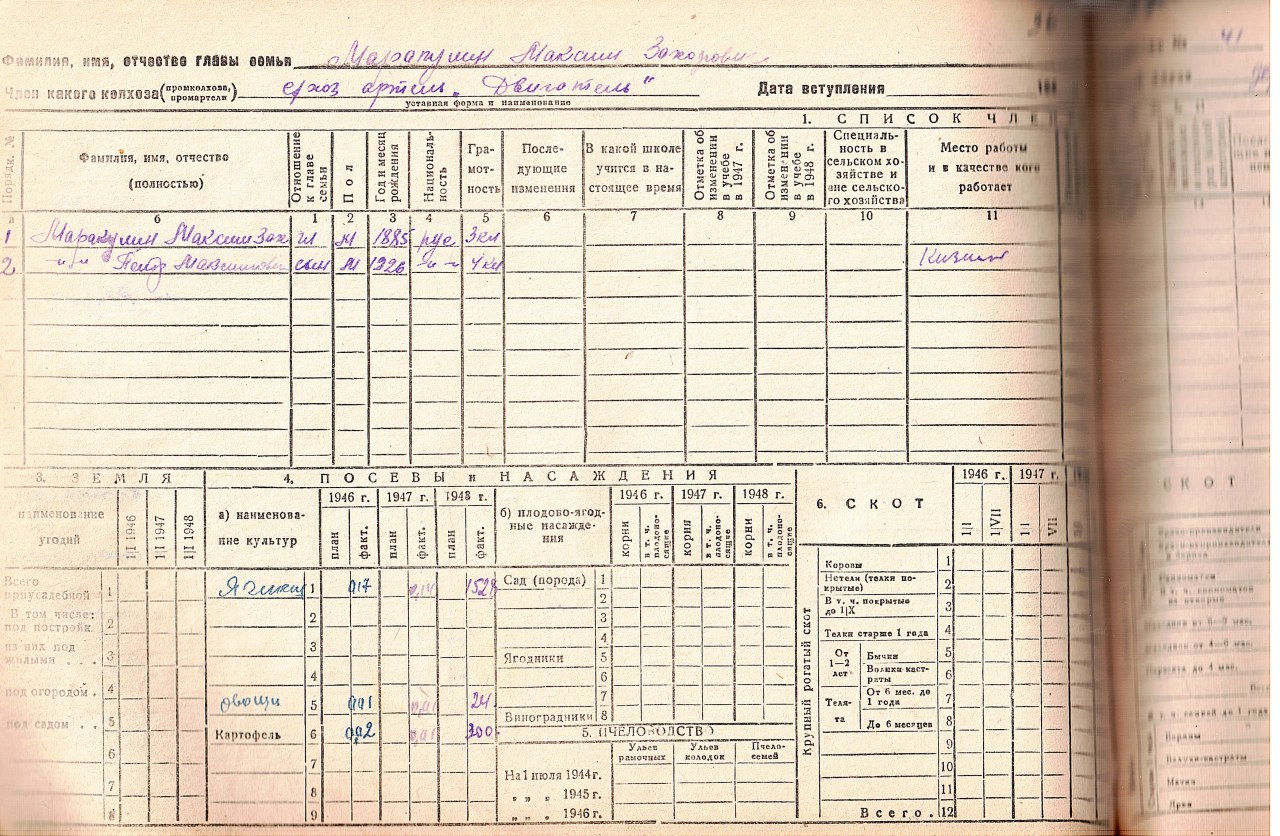 36
Фамилия, имя, отчество главы семьи Маракулин Максим Захарович
Член какого колхоза (промколхоза, промартели) с/хоз артель "Двигатель"
уставная форма и наименование
Дата вступления
1. СПИСОК ЧЛЕ
Порядк. №
Фамилия, имя, отчество (полностью)
Отношение к главе семьи
Пол
Год и месяц рождения
Националь-ность
Гра-мот-ность
После-дующие изменения
В какой школе учится в на-стоящее время
Отметка об изменении в учебе в 1947 г.
Отметка об изменении в учебе в 1948 г.
Специаль-ность в сельском хо-зяйстве и вне сельско-го хозяйства
Место работы и в качестве кого работает
б 1 2 3 4 5 6 7 8 9 10 11
1 Маракулин Максим Зах гл м 1885 рус 3кл
2 -"- Петр Максимович сын м 1926 -"- 4кл
3. ЗЕМЛЯ
наименование угодий
1|I 1946
1|I 1947
1|I 1948
Всего приусадебной 1
В том числе: под постройк. 2
из них под жилыми . . . 3
под огородом . 4
под садом . . 5
6
7
8
4. ПОСЕВЫ и НАСАЖДЕНИЯ
1946 г. 1947 г. 1948 г.
а) наименова-ние культур
план факт. план факт. план факт.
1 0,17 0,14
2
3
4
овощи 5 0,01 0,01 24
Картофель 6 0,02 0,01 300
7
8
9
б) плодово-ягод-ные насажде-ния
1946 г. 1947 г. 1948 г.
корни в т. ч. плодоно-сящие корни в т. ч. плодоно-сящие корни в т. ч. плодоно-сящие
Сад (порода) 1
2
3
4
Ягодники 5
6
7
Виноградники 8
5. ПЧЕЛОВОДСТВО
Ульев рамочных
Ульев колодок
Пчело-семей
На 1 июля 1944 г.
" " " 1945 г.
" " " 1946 г.
6. СКОТ
1946 г. 1947 г.
1|I 1|VII 1|I VII
Крупный рогатый скот
Коровы 1
Нетели (телки по-крытые) 2
В т. ч. покрытые до 1|IX 3
Телки старше 1 года 4
От 1—2 лет
Бычки 5
Волики-каст-раты 6
Теля-та
От 6 мес. до 1 года 7
До 6 месяцев 8
9
10
11
Всего. 12
№ 41
СКОТ